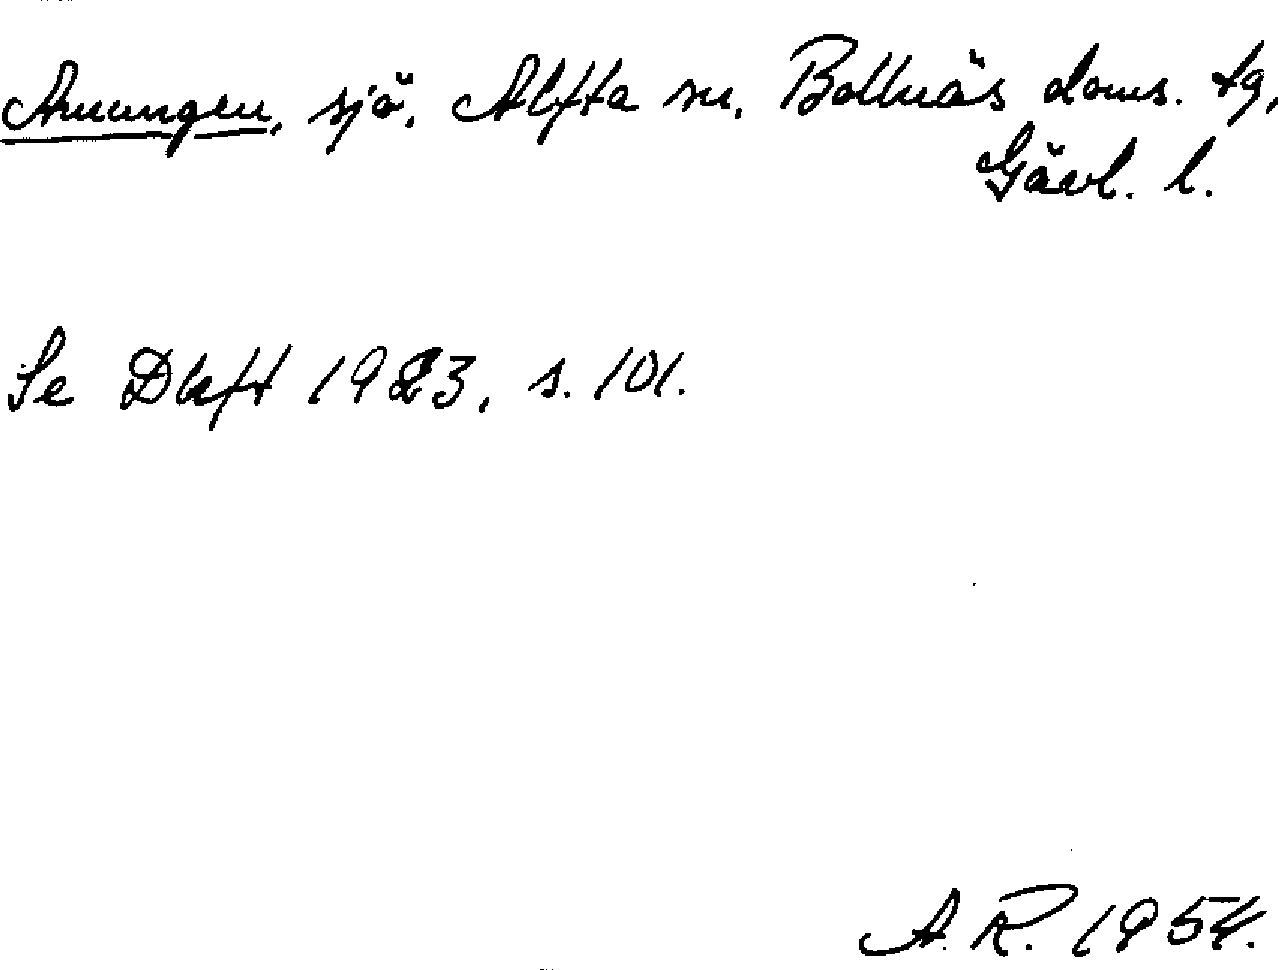 Amungen, sjö, Alfta sn, Bollnäs doms. tg,
Gävl. l.
Se Dlhft 1923, s. 101.
A. R. 1954.